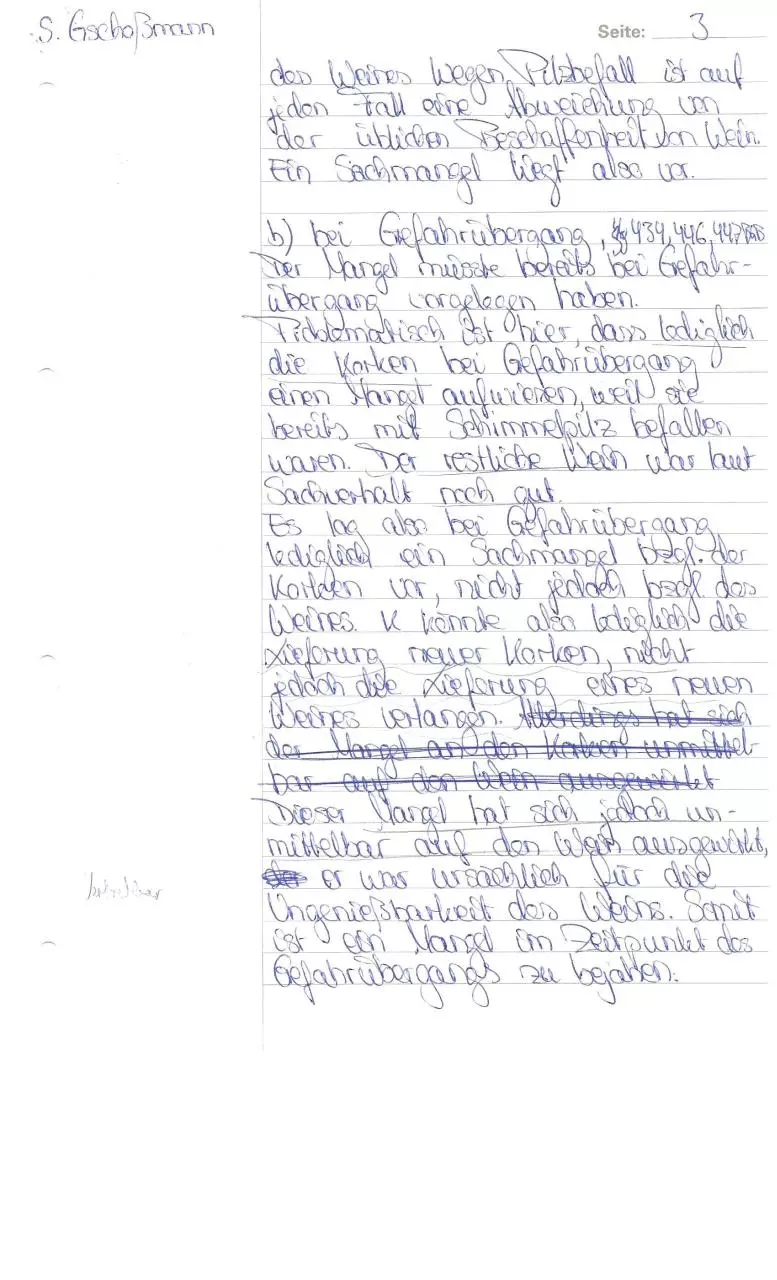 S. Gschoßmann
Seite: 3
des Weines wegen Pilzbefall ist auf
jeden Fall eine Abweichung von
der üblichen Beschaffenheit von Wein.
Ein Sachmangel liegt also vor.
b) bei Gefahrübergang, §§ 434, 446, 447 BGB
Der Mangel müsste bereits bei Gefahr-
übergang vorgelegen haben.
Problematisch ist hier, dass lediglich
die Korken bei Gefahrübergang
einen Mangel aufwiesen, weil sie
bereits mit Schimmelpilz befallen
waren. Der restliche Wein war laut
Sachverhalt noch gut.
Es lag also bei Gefahrübergang
lediglich ein Sachmangel bzgl. der
Korken vor, nicht jedoch bzgl. des
Weines. K könnte also lediglich die
Lieferung neuer Korken, nicht
jedoch die Lieferung eines neuen
Weines verlangen. Allerdings hat sich
der Mangel an den Korken unmittel-
bar auf den Wein ausgewirkt
Dieser Mangel hat sich jedoch un-
mittelbar auf den Wein ausgewirkt,
er war ursächlich für die
Ungenießbarkeit des Weins. Somit
ist ein Mangel im Zeitpunkt des
Gefahrübergangs zu bejahen.